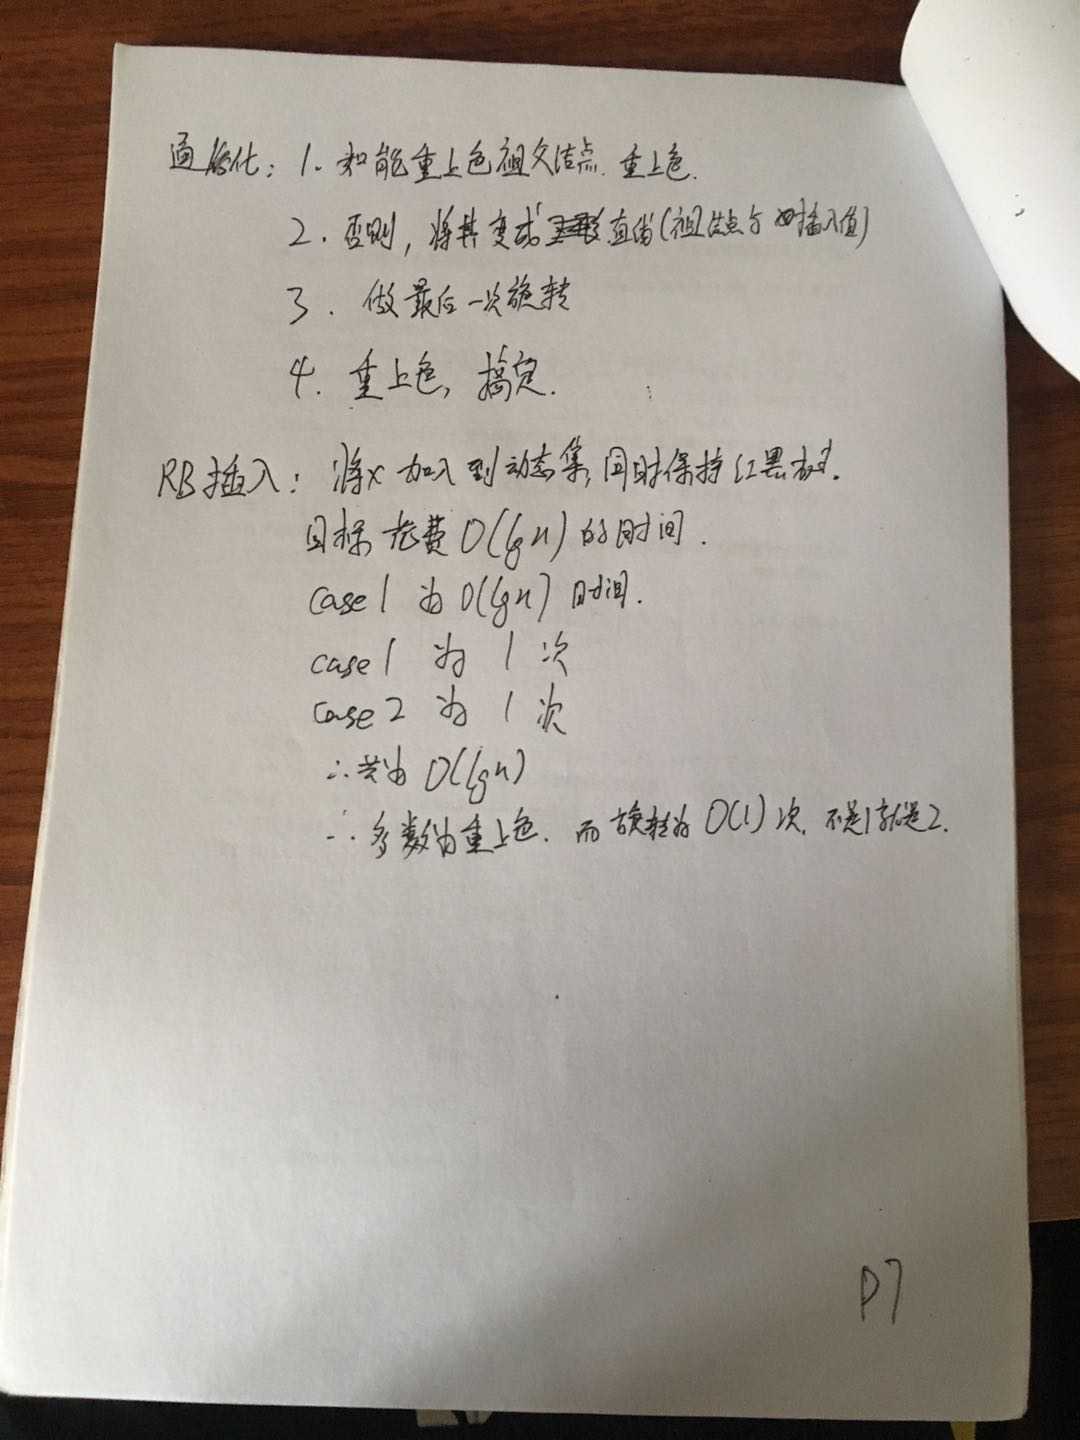 通俗化：1. 和能重上色祖父结点. 重上色.
2. 否则，将其变成直的(祖结点与插入值)
3. 做最后一次旋转
4. 重上色，搞定.
RB插入：将x加入到动态集，同时保持红黑树.
目标 花费O(lgn)的时间.
case1 为O(lgn)时间.
case1 为 1 次
case2 为 1 次
∴共为O(lgn)
∴多数为重上色. 而旋转为O(1)次, 不是1就是2.
P7